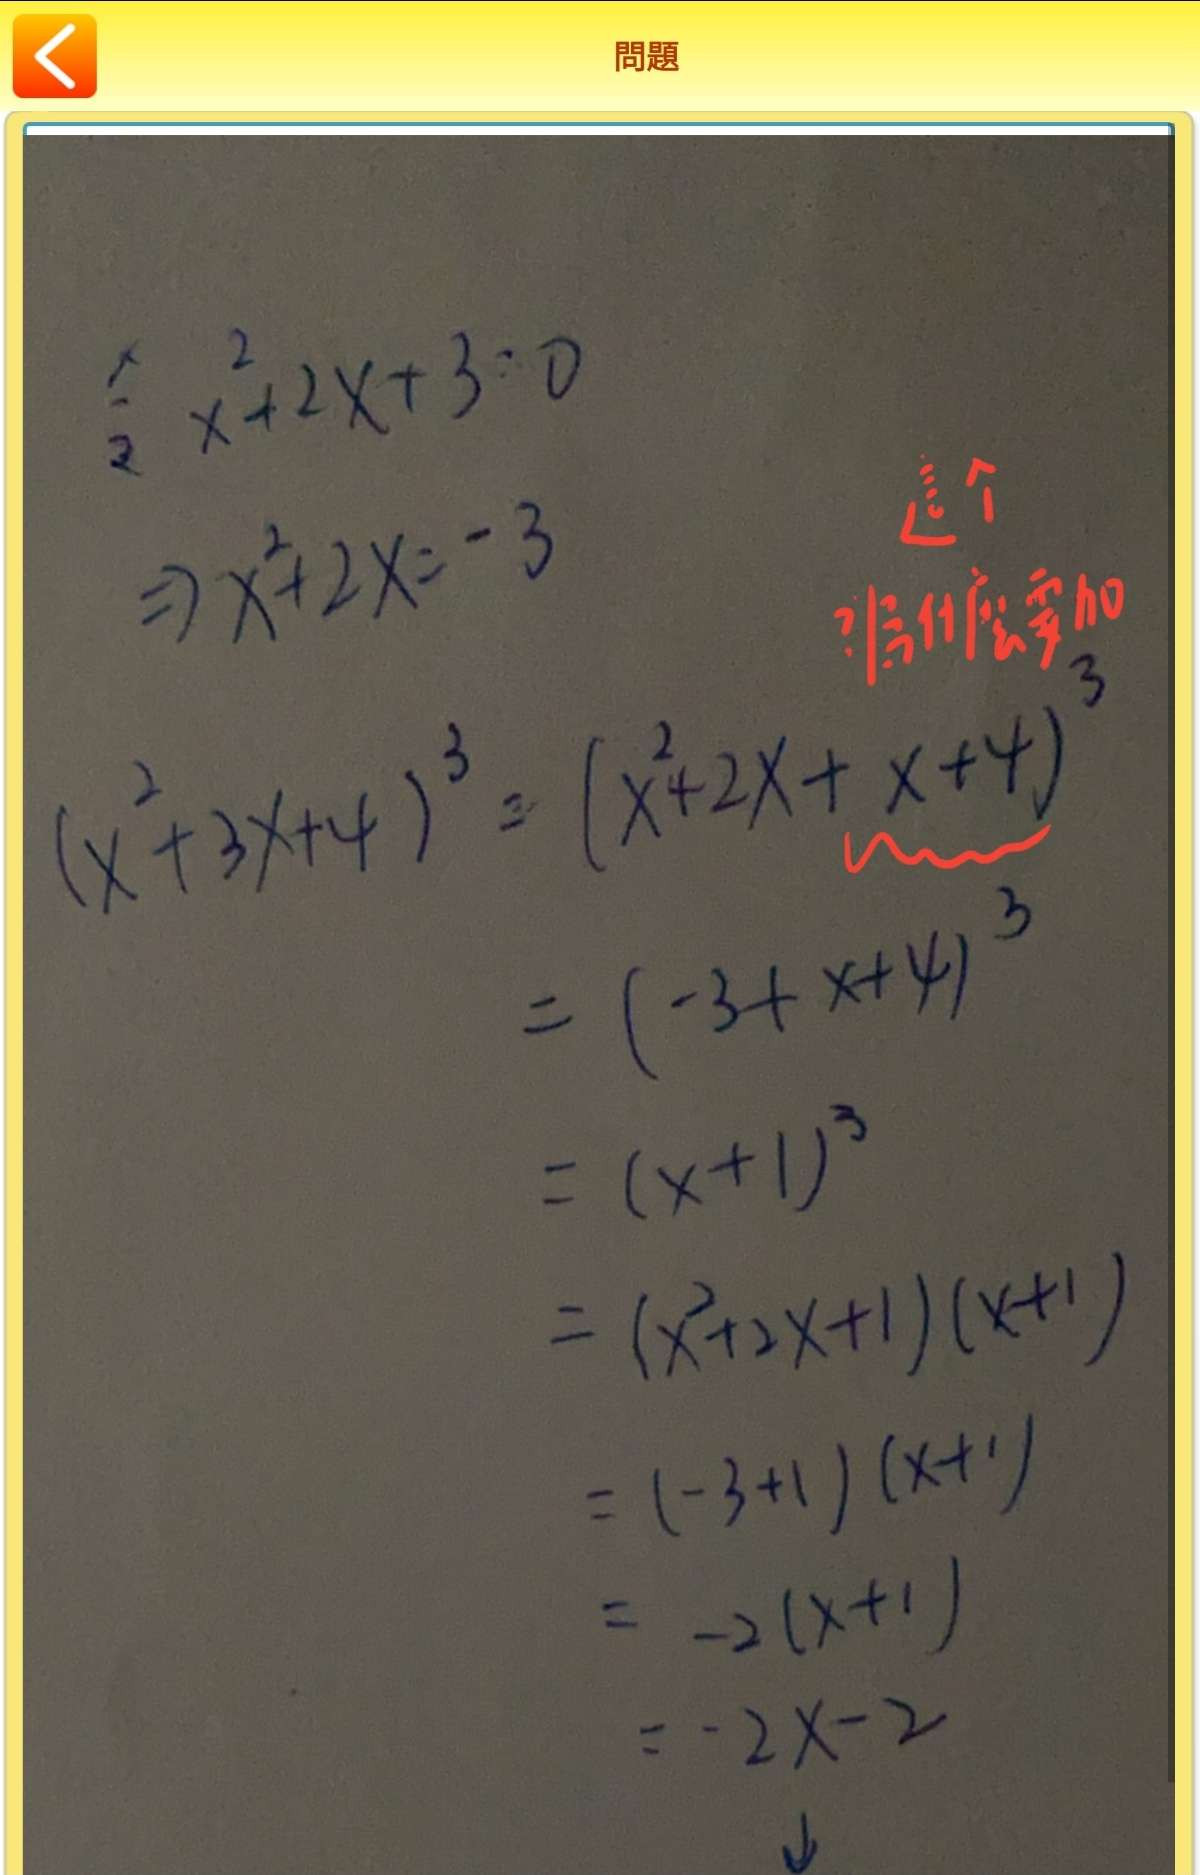 問題
令 x²+2x+3=0
⇒ x²+2x=-3
這个
為什麼要加
(x²+3x+4)³ = (x²+2x+x+4)³
= (-3+x+4)³
= (x+1)³
= (x²+2x+1)(x+1)
= (-3+1)(x+1)
= -2(x+1)
= -2x-2
↓